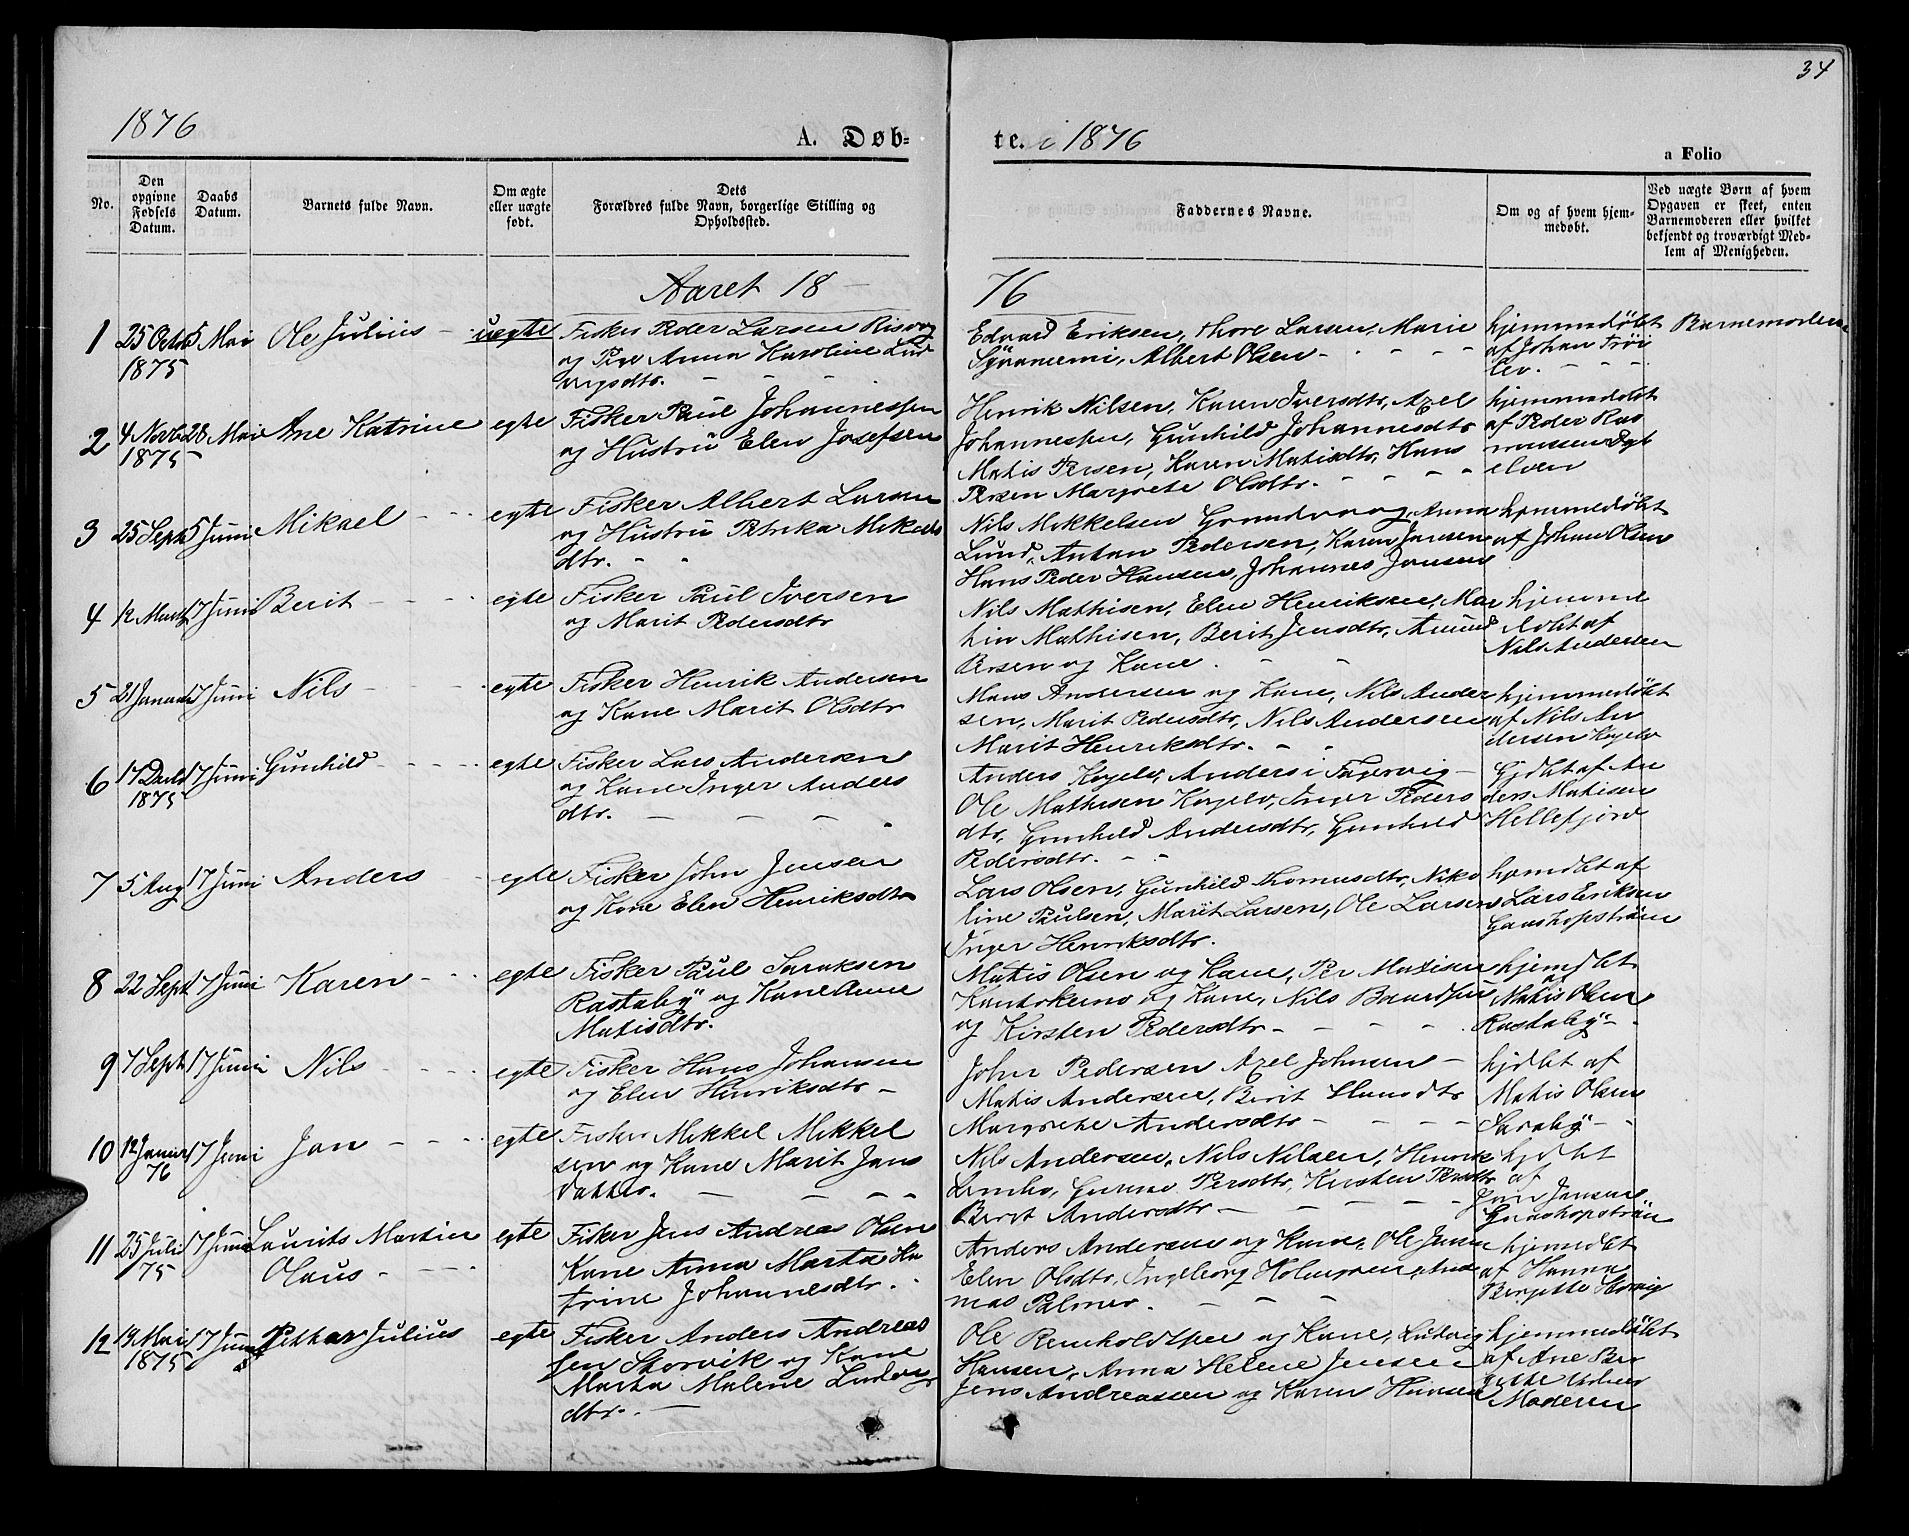 34
1876
A. Døb-
te. i 1876
a Folio
No.
Den opgivne Fødsels Datum.
Daabs Datum.
Barnets fulde Navn.
Om ægte eller uægte født.
Dets
Forældres fulde Navn, borgerlige Stilling og Opholdssted.
Faddernes Navne.
Om og af hvem hjem-
medøbt.
Ved uægte Børn af hvem
Opgaven er skeet, enten
Barnemoderen eller hvilket
bekjendt og troværdigt Med-
lem af Menigheden.
Aaret 18
76
1 25 Octo 5 Mai Ole Julius uegte Fisker Peder Larsen Risvog
1875 og Pige Anna Karoline Lud
vigsdtr.
Edvard Eriksen, Thore Larsen, Marie
Albert Olsen
hjemmedøbt
af Johan
Barnemoderen
2 4 Novb 28 Mai Ane Katrine egte Fisker Paul Johannessen
1875 og Hustru Elen Josefsen
Henrik Nilsen, Karen Iversdtr, Axel
Johannessen, Gunhild Johannesdtr
Matis Persen, Karen Matisdtr, Hans
Persen Margrete Olsdtr.
hjemmedøbt
af Peder Ras
mussen
elven
3 25 Sept 5 Juni Mikael egte Fisker Albert Larsen
og Hustru Petrika Mikals
dtr.
Nils Mikkelsen Grundvaag, Anna
Lund, Anton Pedersen, Karen Jansen
Hans Peder Hansen, Johannes Jansen
hjemmedøbt
af Johan Olsen
4 12 Marts 17 Juni Berit egte Fisker Paul Iversen
og Marit Pedersdtr
Nils Mathisen, Elen Henriksen, Mar
hin Mathisen, Berit Jensdtr, Amund
Persen og Kone.
hjemme
døbt af
Nils Andersen
5 21 Januar 17 Juni Nils egte Fisker Henrik Andersen
og Kone Marit Olsdtr
Hans Andersen og Kone, Nils Ander
sen, Marit Pedersdtr, Nils Andersen
Marit Henriksdtr.
hjemmedøbt
af Nils An
dersen Kogelv
6 17 Decb 17 Juni Gunhild egte Fisker Lars Andersen
1875 og Kone Inger Anders
dtr.
Anders Kogelv, Anders i Fagervig
Ole Mathisen Kogelv, Inger Peders
dtr, Gunhild Andersdtr, Gunhild
Pedersdtr.
hjdbt af An
ders Matisen
Hellefjord
7 5 Aug 17 Juni Anders egte Fisker John Jensen
og Kone Elen Henriksdtr
Lars Olsen, Gunhild Thomasdtr, Niko
line Paulsen, Marit Larsen, Ole Larsen
Inger Henriksdtr.
hjemdbt af
Lars Eriksen
Gaashopstrøm
8 22 Sept 17 Juni Karen egte Fisker Paul Saraksen
Rastaby og Kone Anne
Matisdtr.
Matis Olsen og Kone, Per Matisen
Kautokeino og Kone, Nils Baardsen
og Kirsten Pedersdtr
hjemdbt
af
Matis Olsen
Rastaby
9 7 Sept 17 Juni Nils egte Fisker Hans Johansen
og Elen Henriksdtr
John Pedersen Axel Johnsen
Matis Andersen, Berit Hansdtr
Margrete Andersdtr
hjdbt af
Matis Olsen
Saraby
10 12 Januar 17 Juni Jan egte Fisker Mikkel Mikkel
76 sen og Kone Marit Jans
datter.
Nils Andersen, Nils Nilsen, Henrik
Persdtr, Kirsten Persdtr
Berit Andersdtr
hjdbt
af
Jon Jansen
Gaashopstrøm
11 25 Juli 17 Juni Laurits Martin egte Fisker Jens Andreas Olsen
75 Olaus Kone Anna Marta Ka
trine Johannesdtr.
Anders Andersen og Kone, Ole Jensen
Elen Olsdtr, Ingeborg Holmgren, And
reas Palmer.
hjemedbt
af Hanna
Bergitte Storvig
12 19 Mai 17 Juni Petter Julius egte Fisker Anders Andreas
1875 sen Storvik og Kone
Marta Malene Ludvigs
dtr.
Ole Reinholdtsen og Kone, Ludvig
Hansen, Anna Helene Jensen
Jens Andreassen og Karen Hansen
hjemmedøbt
af Ane Ber
gitte
Moderen